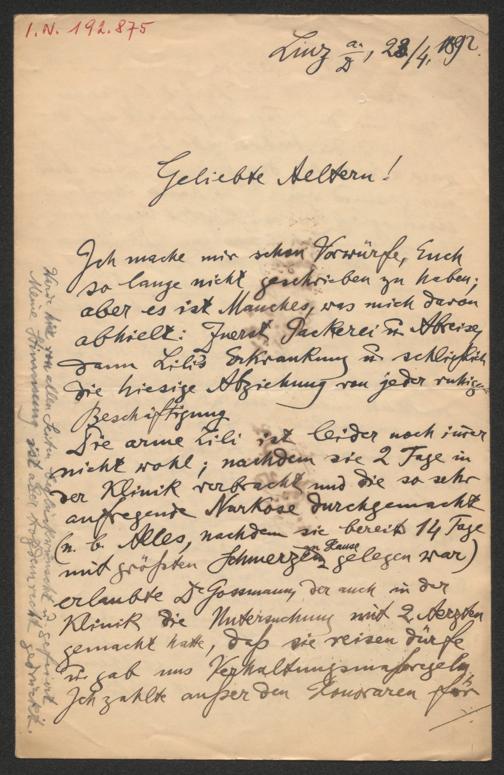 I.N. 192.875
Linz a. D, 28/4. 1892.
Geliebte Aeltern!
Ich mache mir schon Vorwürfe, Euch
so lange nicht geschrieben zu haben;
aber es ist Manches, was mich davon
abhielt: Zuerst Packerei u Abreise,
dann Lili's Erkrankung u schließlich
die hiesige Abziehung von jeder ruhigen
Beschäftigung
Die arme Lili ist leider noch immer
nicht wohl; nachdem sie 2 Tage in
der Klinik verbracht und die so sehr
aufregende Narkose durchgemacht
(n. b. Alles, nachdem sie bereits 14 Tage
mit größten Schmerzen zu Hause gelegen war)
erlaubte Dr Gossmann, der auch in der
Klinik die Untersuchung mit 2 Aerzten
gemacht hatte, daß sie reisen dürfe
u gab uns Verhaltungsmaßregeln
Ich zahlte außer den Honoraren für
Werde hier von allen Seiten beglückwünscht u gefeiert
Meine Stimmung ist aber trotzdem recht gedrückt.